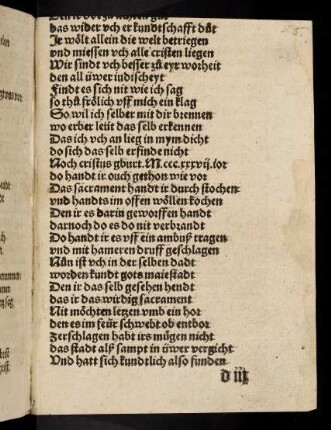 das wider vch er kundtschafft důt
Jr wölt allein die welt betriegen
vnd miessen vch alle cristen liegen
Wir sindt vch besser zů eyr worheit
den all üwer indischeyt
Findt es sich nit wie ich sag
so thů frölich vff mich ein klag
So wil ich selber mit dir brennen
wo erber leüt das selb erkennen
Das ich vch an lieg in mym dicht
do sich das selb erfinde nicht
Noch cristus gburt. M.ccc.xxxvij. ior
do handt ir ouch gethon wie vor
Das sacrament handt ir durch stochen
vnd handts im offen wöllen kochen
Den ir es darin geworffen handt
darnoch do es do nit verbrandt
Do handt ir es vff ein ambuß tragen
vnd mit hameren druff geschlagen
Nůn ist vch in der selben dadt
worden kundt gots maiestadt
Den ir das selb gesehen hendt
das ir das wirdig sacrament
Nit möchten letzen vmb ein hor
den es im feür schwebt ob entbor
Zerschlagen habt irs mügen nicht
das stadt alß sampt in üwer vergicht
Vnd hatt sich kundtlich also funden
d iij